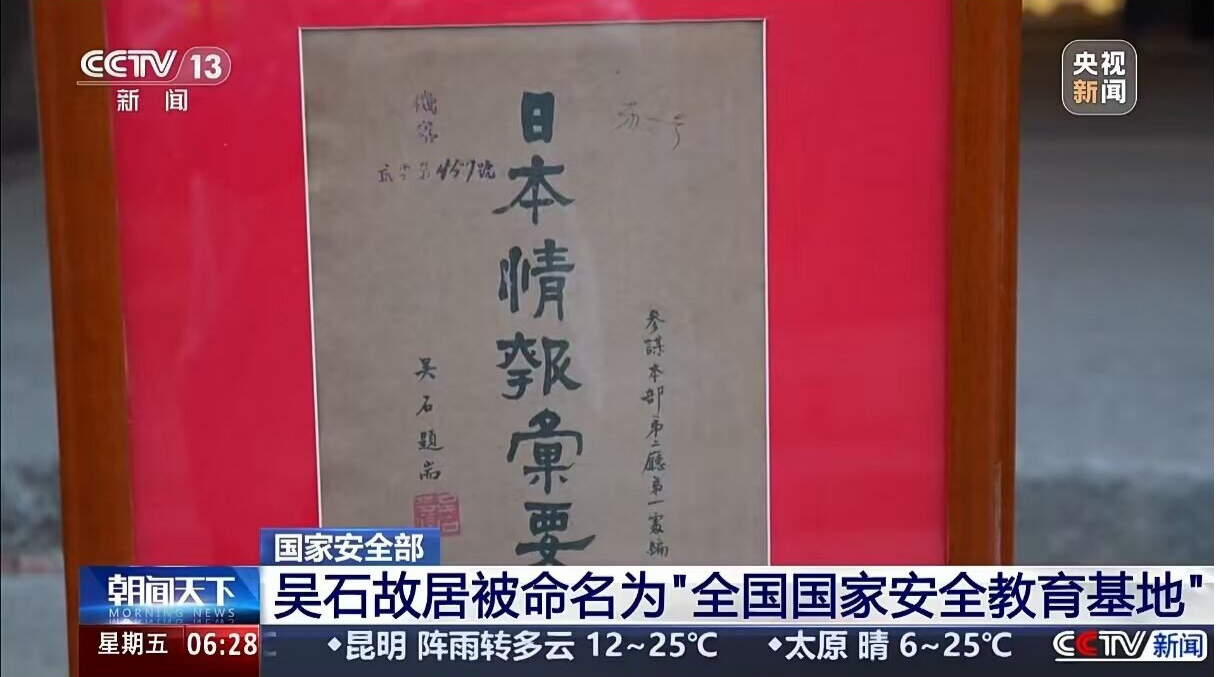 CCTV 13
新闻
央视
新闻
日本情報彙要
參謀本部第二廳第一處編
吳石題耑
國家安全部
吴石故居被命名为"全国国家安全教育基地"
朝闻天下
MORNING NEWS
星期五 06:28
℃ •昆明 阵雨转多云 12~25℃ •太原 晴 6~25℃
CCTV 新闻